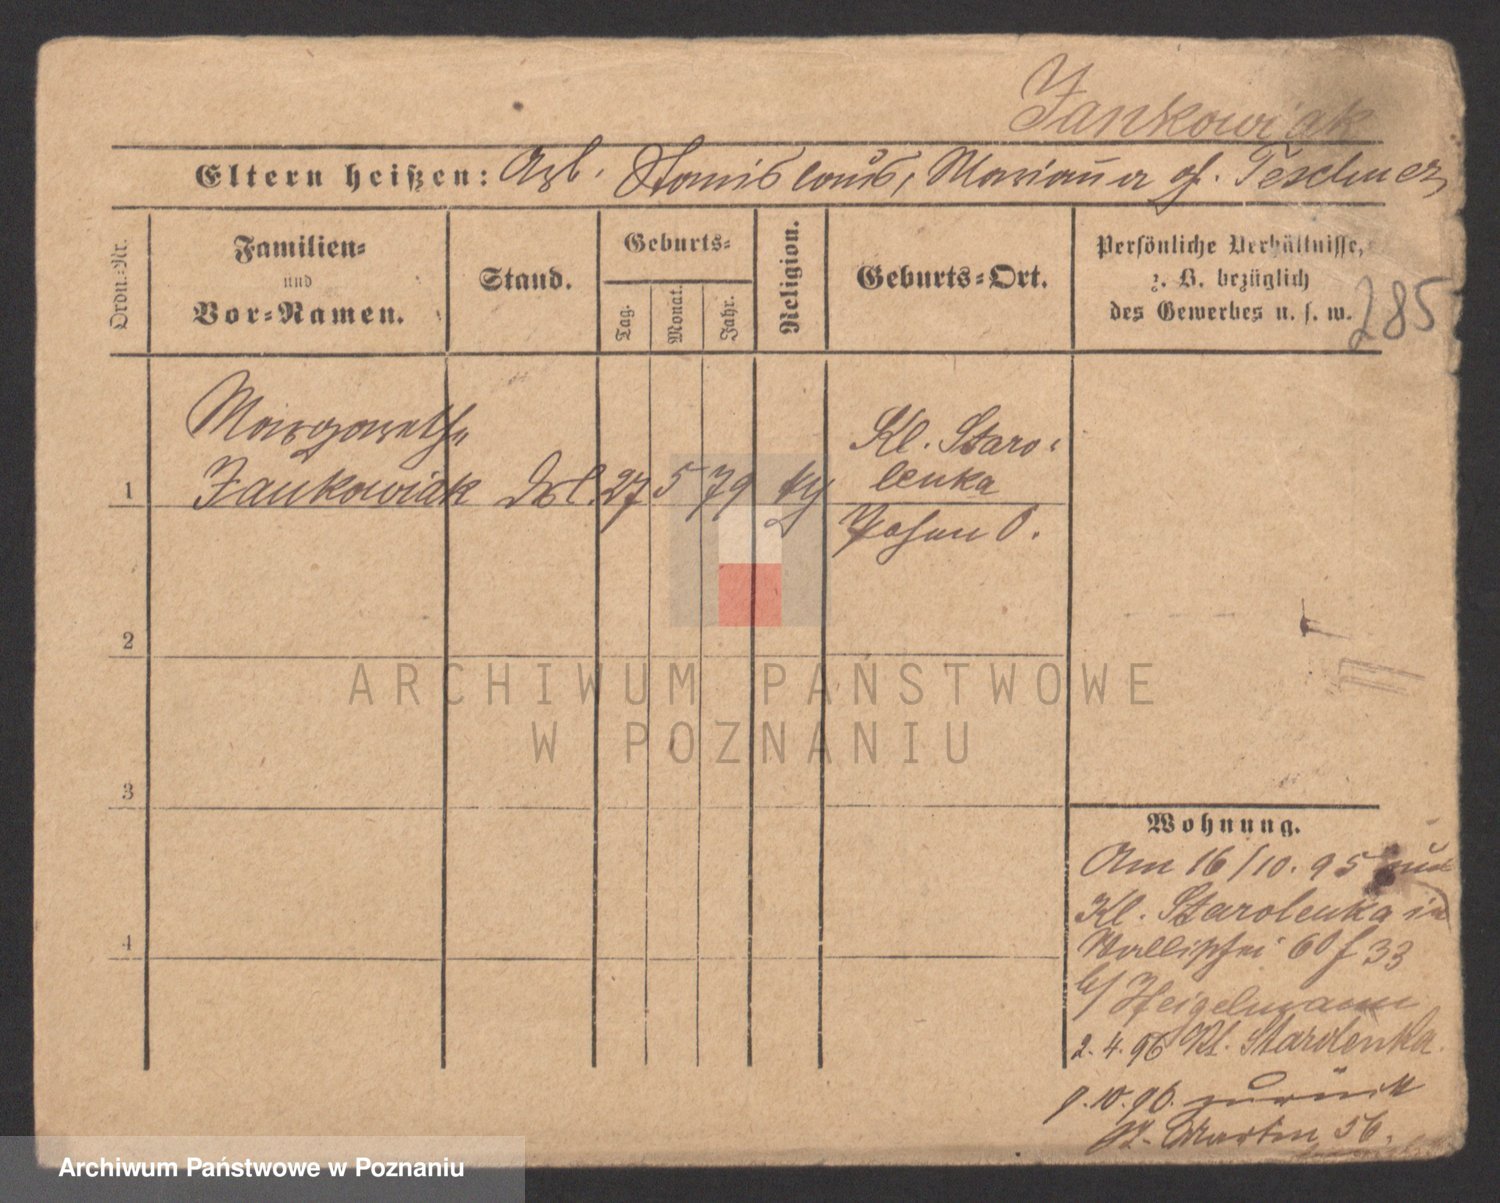 Jankowiak
Eltern heißen: Arb. Stanislaus, Marianna gb. Teschner
Ordn.=Nr.
Familien=
und
Vor=Namen.
Stand.
Geburts=
Tag.
Monat.
Jahr.
Religion.
Geburts=Ort.
Persönliche Verhältnisse,
z. B. bezüglich
des Gewerbes u. s. w.
285
Margarethe
Jankowiak
1
27 5 79
Kl. Staro=
lenka
Posen O.
2
3
4
Wohnung.
Am 16/10. 95 aus
Kl. Starolenka in
Wallischei 33
b/ Heigelmann
2. 4. 96 Kl. Starolenka.
9. 10. 96. zurück
St. Martin 56.
ARCHIWUM PAŃSTWOWE
W POZNANIU
Archiwum Państwowe w Poznaniu